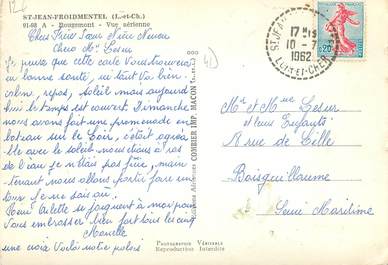 ST-JEAN-FROIDMENTEL (L.-et-Ch.)
91-98 A - Rougemont - Vue aérienne
Cher Frère Sœur Nièce Neveu
Chero Mr Lesur
Je pense que cette carte vous trouvera
en bonne santé, ici tout va bien
calme, repos, soleil mais aujourd
hui le temps est couvert. Dimanche
nous avons fait une promenade en
bateau sur le Loir, c'était agréa
ble avec le soleil nous étions à ras
de l'eau je n'étais pas fière, main-
tenant nous allons partir faire un
tour je ne sais où.
Arlette se joignant à moi pour
vous embrasser bien fort tous les cinq
une croix Voilà notre palois
Editions Aériennes COMBIER IMP. MACON
PHOTOGRAPHIE VÉRITABLE
Reproduction Interdite
ST JEAN
17H15
10-7
1962
LOIR-ET-CHER
0,20
Mr et Mme Lesur
et leurs Enfants
8 rue de Lille
Boisguillaume
Seine Maritime